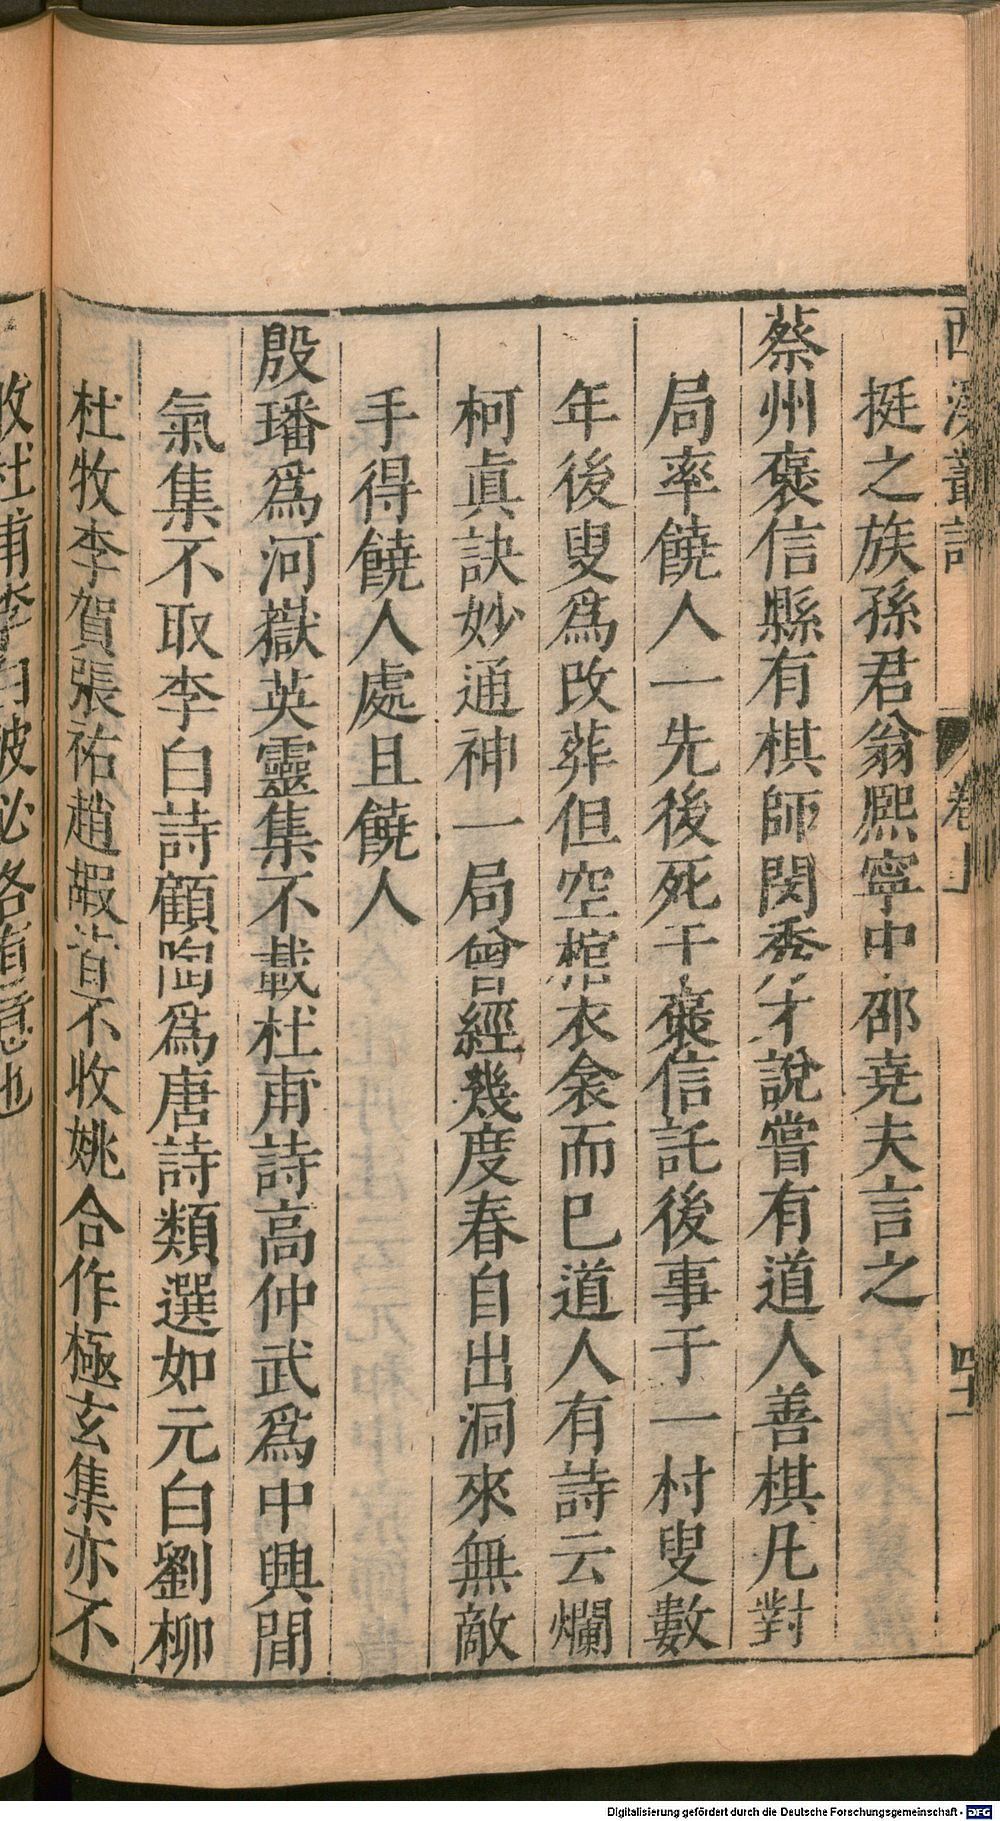 西溪叢語 卷上 四十一
挺之族孫君翁熙寧中邵堯夫言之
蔡州褒信縣有棋師閔秀才說嘗有道人善棋凡對
局率饒人一先後死于褒信託後事于一村叟數
年後叟爲改葬但空棺衣衾而已道人有詩云爛
柯眞訣妙通神一局曾經幾度春自出洞來無敵
手得饒人處且饒人
殷璠爲河嶽英靈集不載杜甫詩高仲武爲中興間
氣集不取李白詩顧陶爲唐詩類選如元白劉柳
杜牧李賀張祐趙嘏皆不收姚合作極玄集亦不
收杜甫李白彼必各有意也
Digitalisierung gefördert durch die Deutsche Forschungsgemeinschaft - DFG